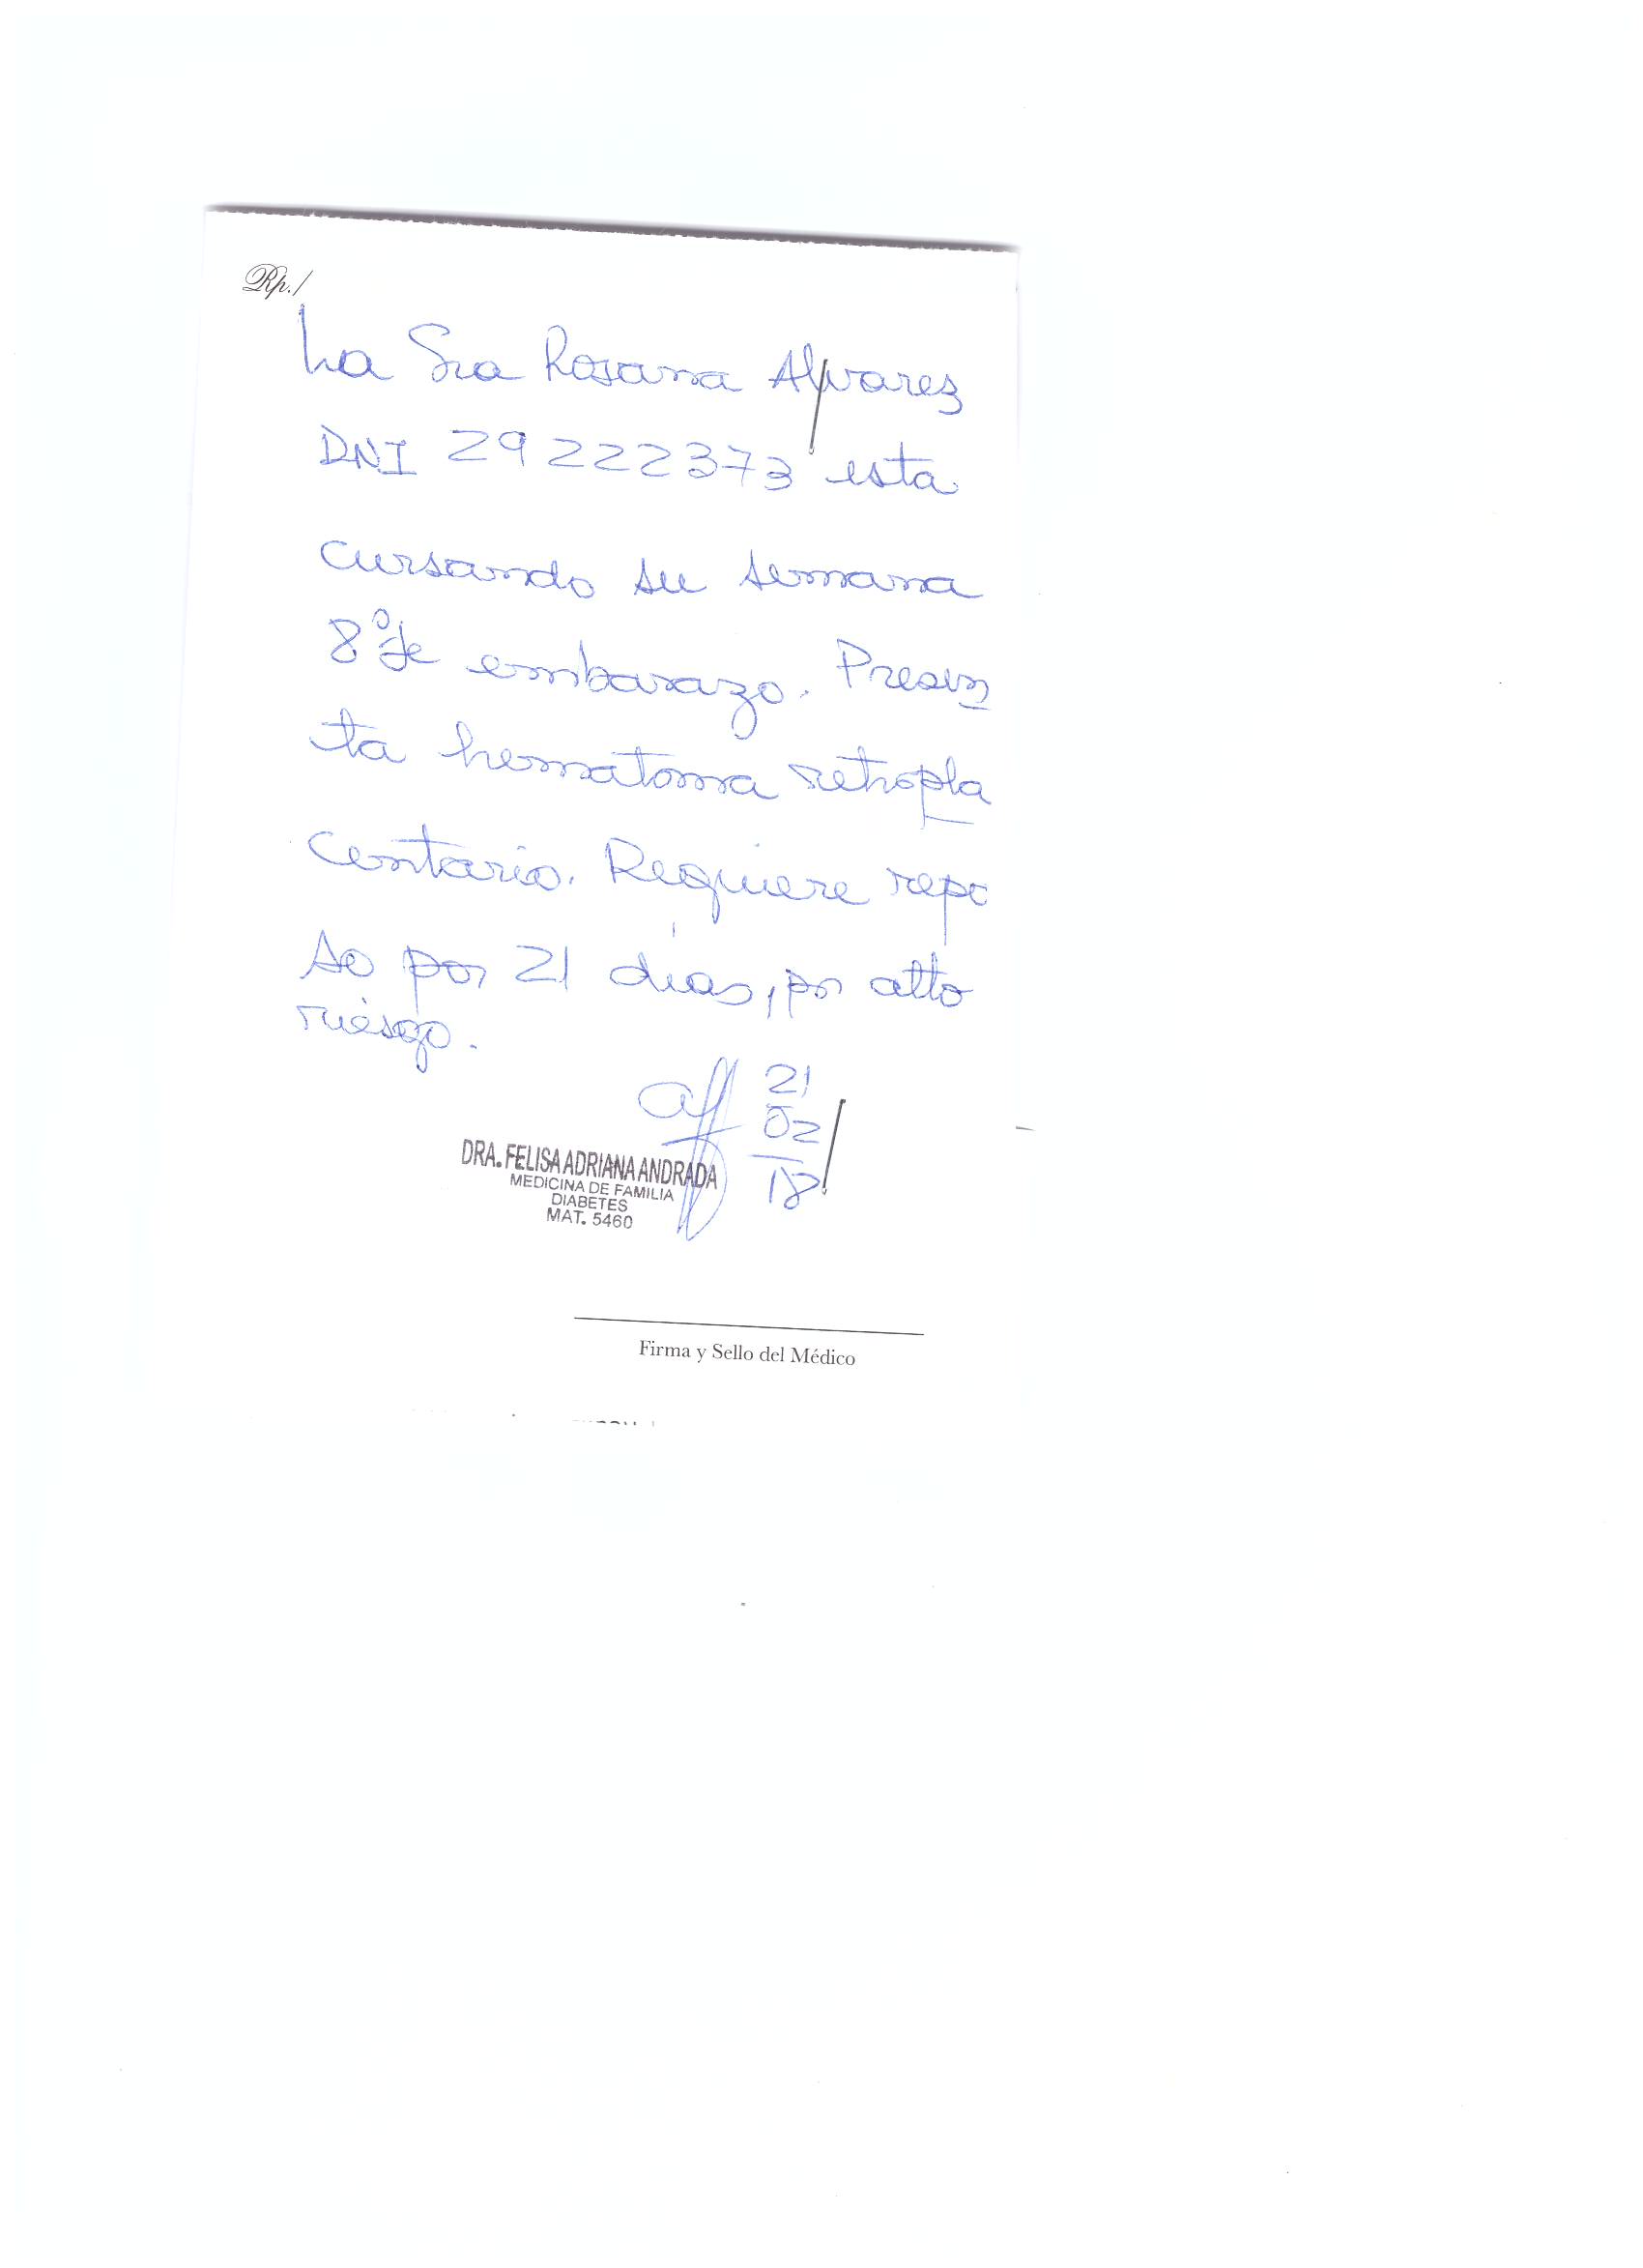 Rp./
La Sra Rosana Alvarez
DNI 29222373 esta
cursando su semana
8º de embarazo. Presen
ta hematoma retropla
centario. Requiere repo
so por 21 días, por alto
riesgo.
21
02
18
DRA. FELISA ADRIANA ANDRADA
MEDICINA DE FAMILIA
DIABETES
MAT. 5460
Firma y Sello del Médico